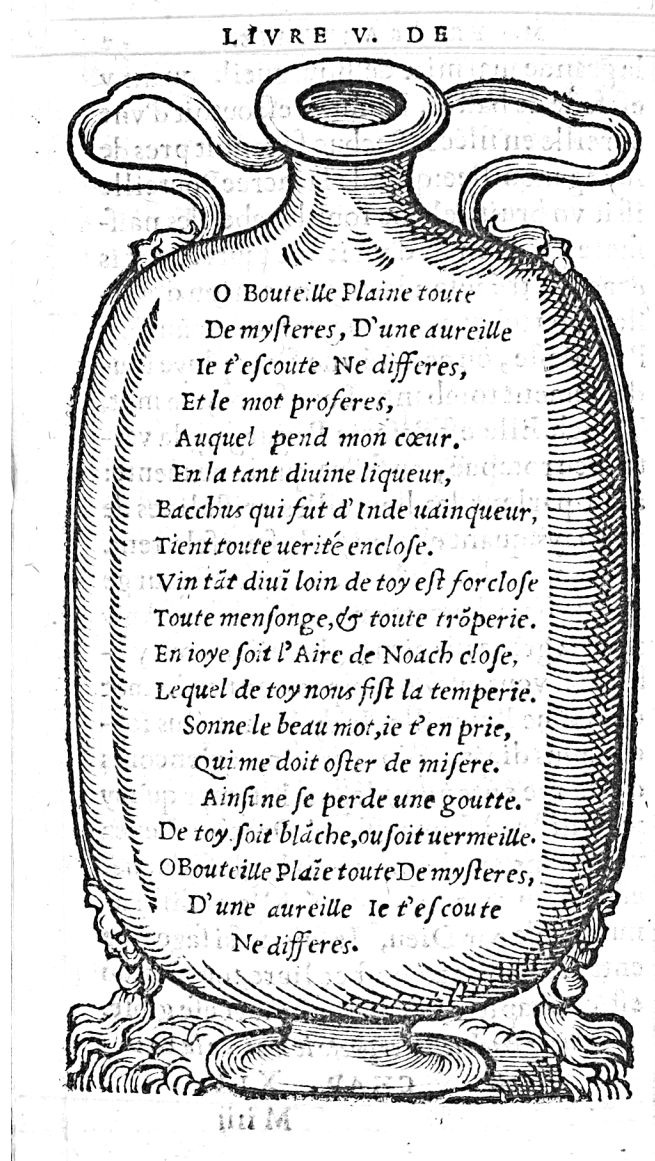 LIVRE V. DE
O Bouteille Plaine toute
De myſteres, D'une aureille
Ie t'eſcoute Ne differes,
Et le mot proferes,
Auquel pend mon cœur.
En la tant diuine liqueur,
Bacchus qui fut d'Inde uainqueur,
Tient toute uerité encloſe.
Vin tãt diuĩ loin de toy eſt forcloſe
Toute menſonge, & toute trõperie.
En ioye ſoit l'Aire de Noach cloſe,
Lequel de toy nous fiſt la temperie.
Sonne le beau mot, ie t'en prie,
Qui me doit oſter de miſere.
Ainſi ne ſe perde une goutte.
De toy ſoit blãche, ou ſoit uermeille.
O Bouteille Plaĩe toute De myſteres,
D'une aureille Ie t'eſcoute
Ne differes.